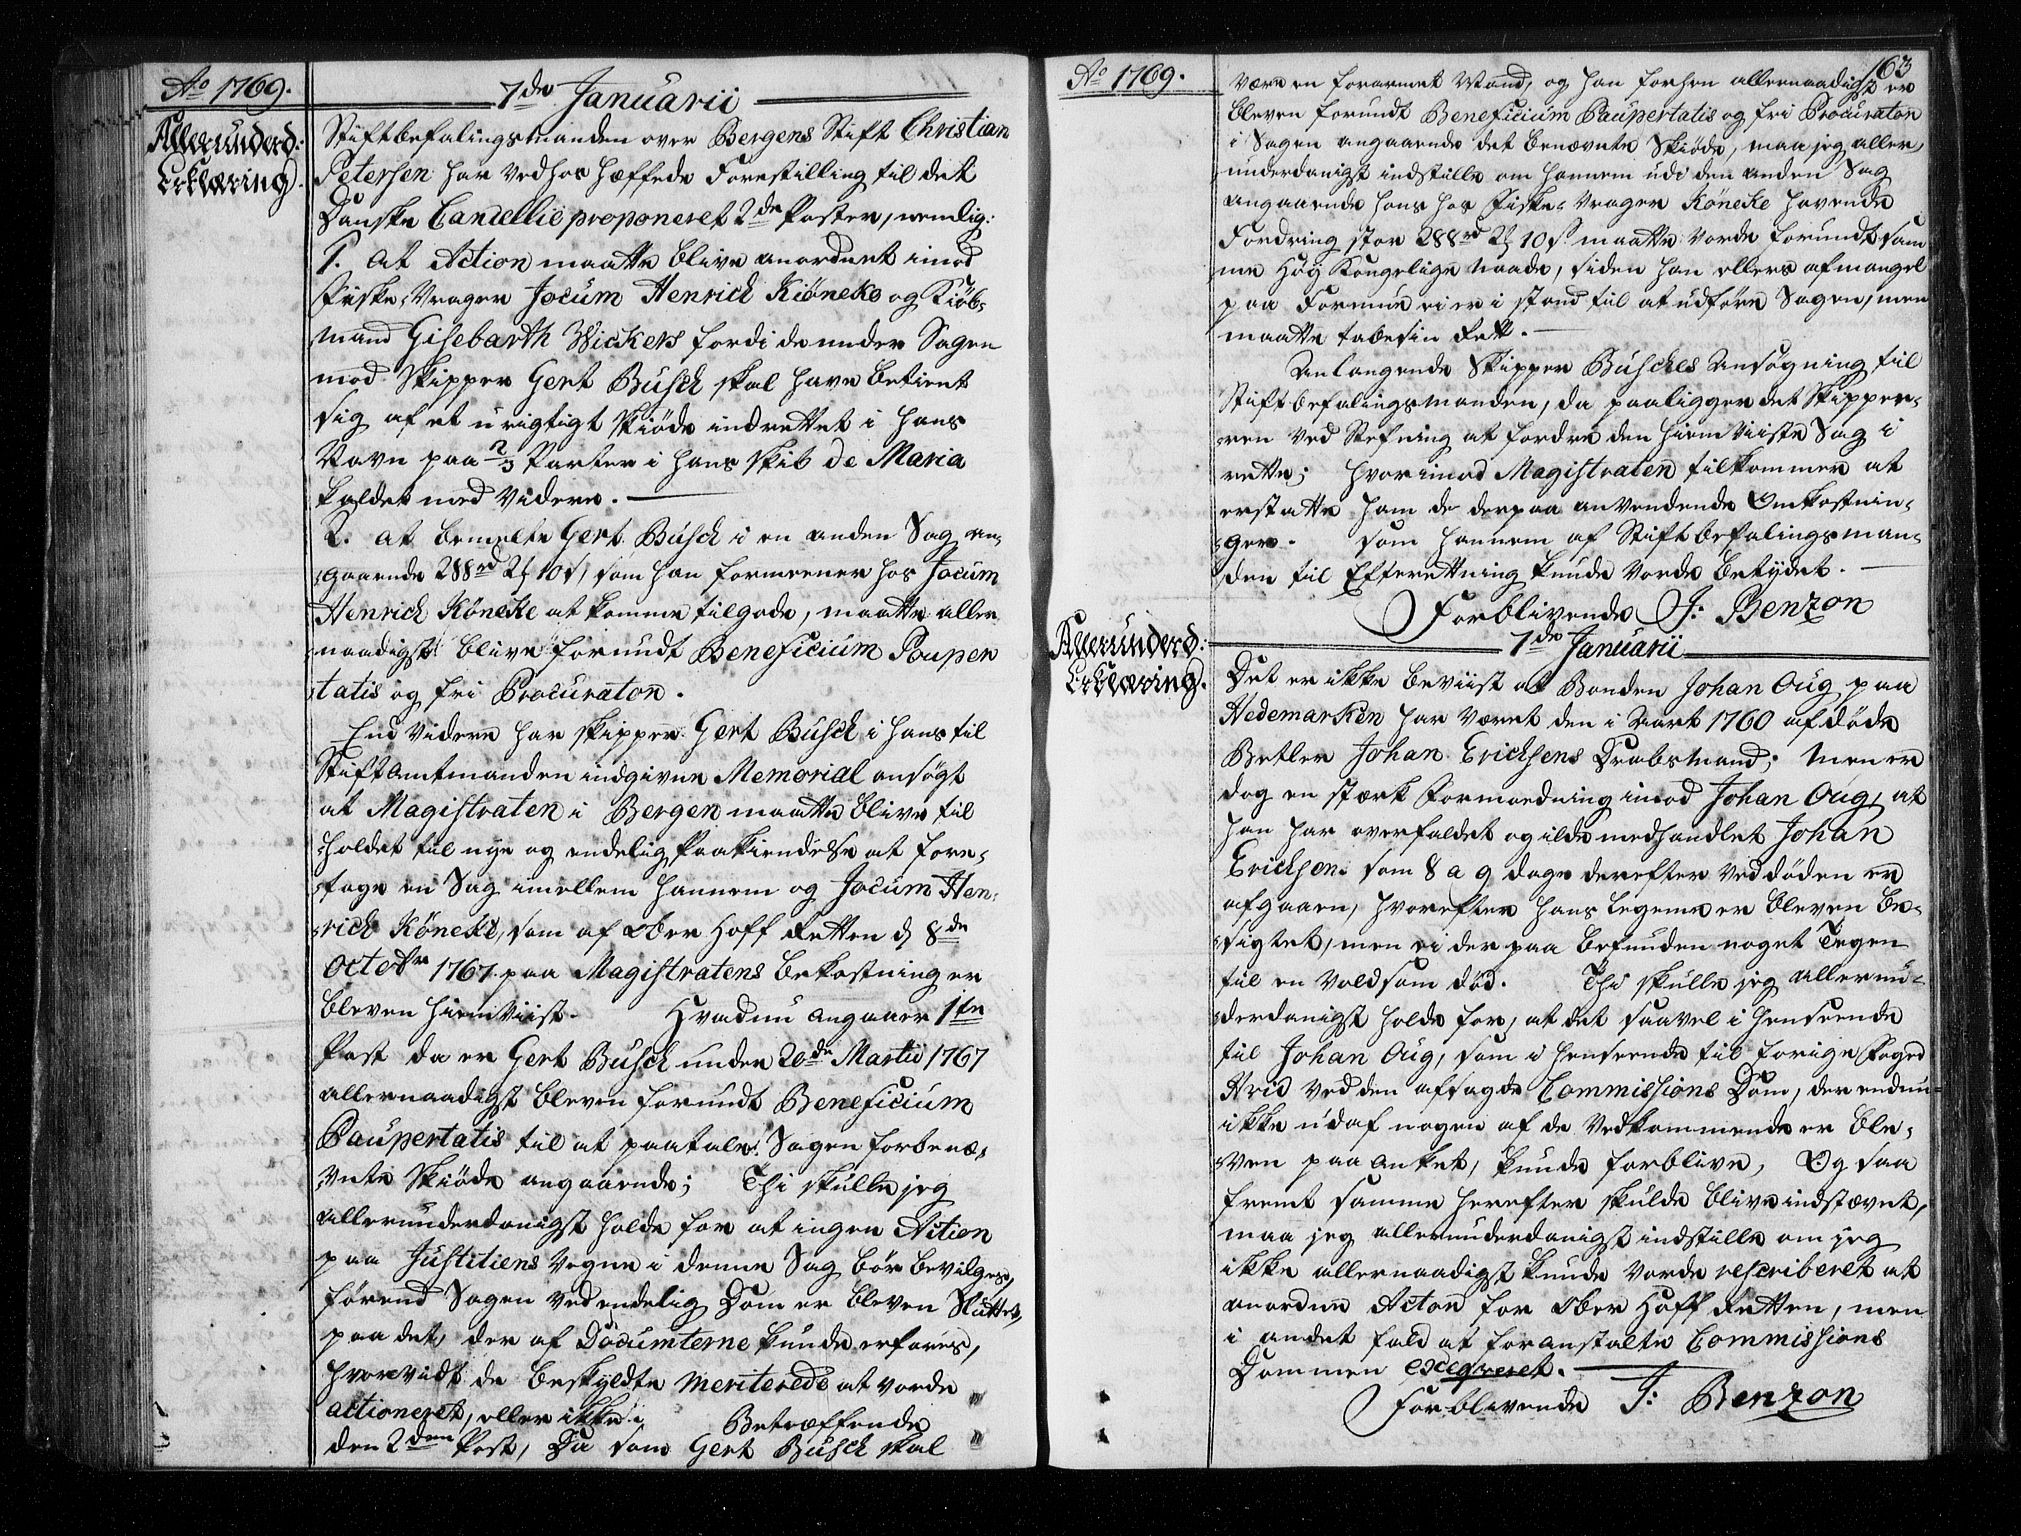 Ao 1769.
7de Januarii
Allerunderd:
Erklæring.
Stiftbefalingsmanden over Bergens Stift Christian
Petersen har vedhos hæftede Forestilling til det
Danske Cancellie proponeret 2de Poster, nemlig:
1. at Action maatte blive anordnet imod
Fiske-Vrager Jocum Henrich Kiöneke og Kiöb-
mand Gisebarth Wickers fordi de under Sagen
mod Skipper Gert Busch skal have betient
sig af et urigtigt Skiöde indrettet i hans
Navn paa 2/3 Parter i hans Skib de Maria
kaldet med videre.
2. at bemelte Gert Busch i en anden Sag an-
gaaende 288rd 2 10s, som han formeener hos Jocum
Henrich Köneke at komme tilgode, maatte aller
naadigst blive forundt Beneficium Pauper
tatis og fri Procurator.
End videre har Skipper Gert Busch i hans til
Stiftamtmanden indgivne Memorial ansögt
at Magistraten i Bergen maatte blive til
holdet til nye og endelig Paakiendelse at fore-
tage en Sag imellem hannem og Jocum Hen-
rich Köneke, som af Ober Hoff Retten d 8de
Octobr 1767 paa Magistratens bekostning er
bleven hiemviist. Hvad nu angaaer 1te
Post da er Gert Busch under 20de Martii 1767
allernaadigst bleven forundt Beneficium
Paupertatis til at paatale Sagen forbenæ-
vnte Skiöde angaaende; Thi skulle jeg
allerunderdanigst holde for at ingen Action
paa Justitiens Vegne i denne Sag bör bevilges,
förend Sagen ved endelig Dom er bleven sluttet,
paa det, der af Documterne kunde erfares,
hvorvidt de beskyldte meriterede at vorde
actioneret, eller ikke; Betræffende
den 2den Post, Da som Gert Busch skal
Ao 1769.
163
være en forarmet Mand, og han forhen allernaadigst er
bleven forundt Beneficium Paupertatis og fri Procurator
i Sagen angaaende det benævnte Skiöde, maa jeg aller-
underdanigst indstille om hannem udi den anden Sag
angaaende hans hos Fiske-Vrager Köneke havende
Fordring stor 288rd 2 10s. maatte vorde forundt sam
me Höy Kongelige Naade, siden han ellers af mangel
paa Formue ei er i stand til at udföre Sagen, men
maatte tabe sin Rett.
Anlangende Skipper Busches Ansögning til
Stiftbefalingsmanden, da paaligger det Skippe-
ren ved Stefning at fordre den hiemviiste Sag i
rette; hvorimod Magistraten tilkommer at
erstatte ham de derpaa anvendende Omkostnin-
ger. som hannem af Stiftbefalingsman-
den til Efterrettning kunde vorde betydet.
Forblivende J: Benzon
7de Januarii
Allerunderd:
Erklæring.
Det er ikke beviist at Bonden Johan Oug paa
Hedemarken har været den i Aaret 1760 afdöde
Betler Johan Erichsens Drabsmand; men er
dog en stærk Formodning imod Johan Oug, at
han har overfaldet og ilde medhandlet Johan
Erichsen. som 8 a 9 dage derefter ved döden er
afgaaen, hvorefter hans legeme er bleven be-
sigtet, men ei derpaa befunden noget Tegen
til en voldsom död. Thi skulle jeg allerun-
derdanigst holde for, at det saavel i henseende
til Johan Oug, som i henseende til forige Foged
Hvid ved den afsagde Commissions Dom, der endnu
ikke udaf nogen af de Vedkommende er ble-
ven paaanket, kunde forblive, Og saa
fremt samme herefter skulde blive indstævnet,
maa jeg allerunderdanigst indstille om jeg
ikke allernaadigst kunde vorde rescriberet at
anordne Actor for Ober Hoff Retten, men
i andet fald at foranstalte Commissions
Dommen exeqveret.
Forblivende J: Benzon